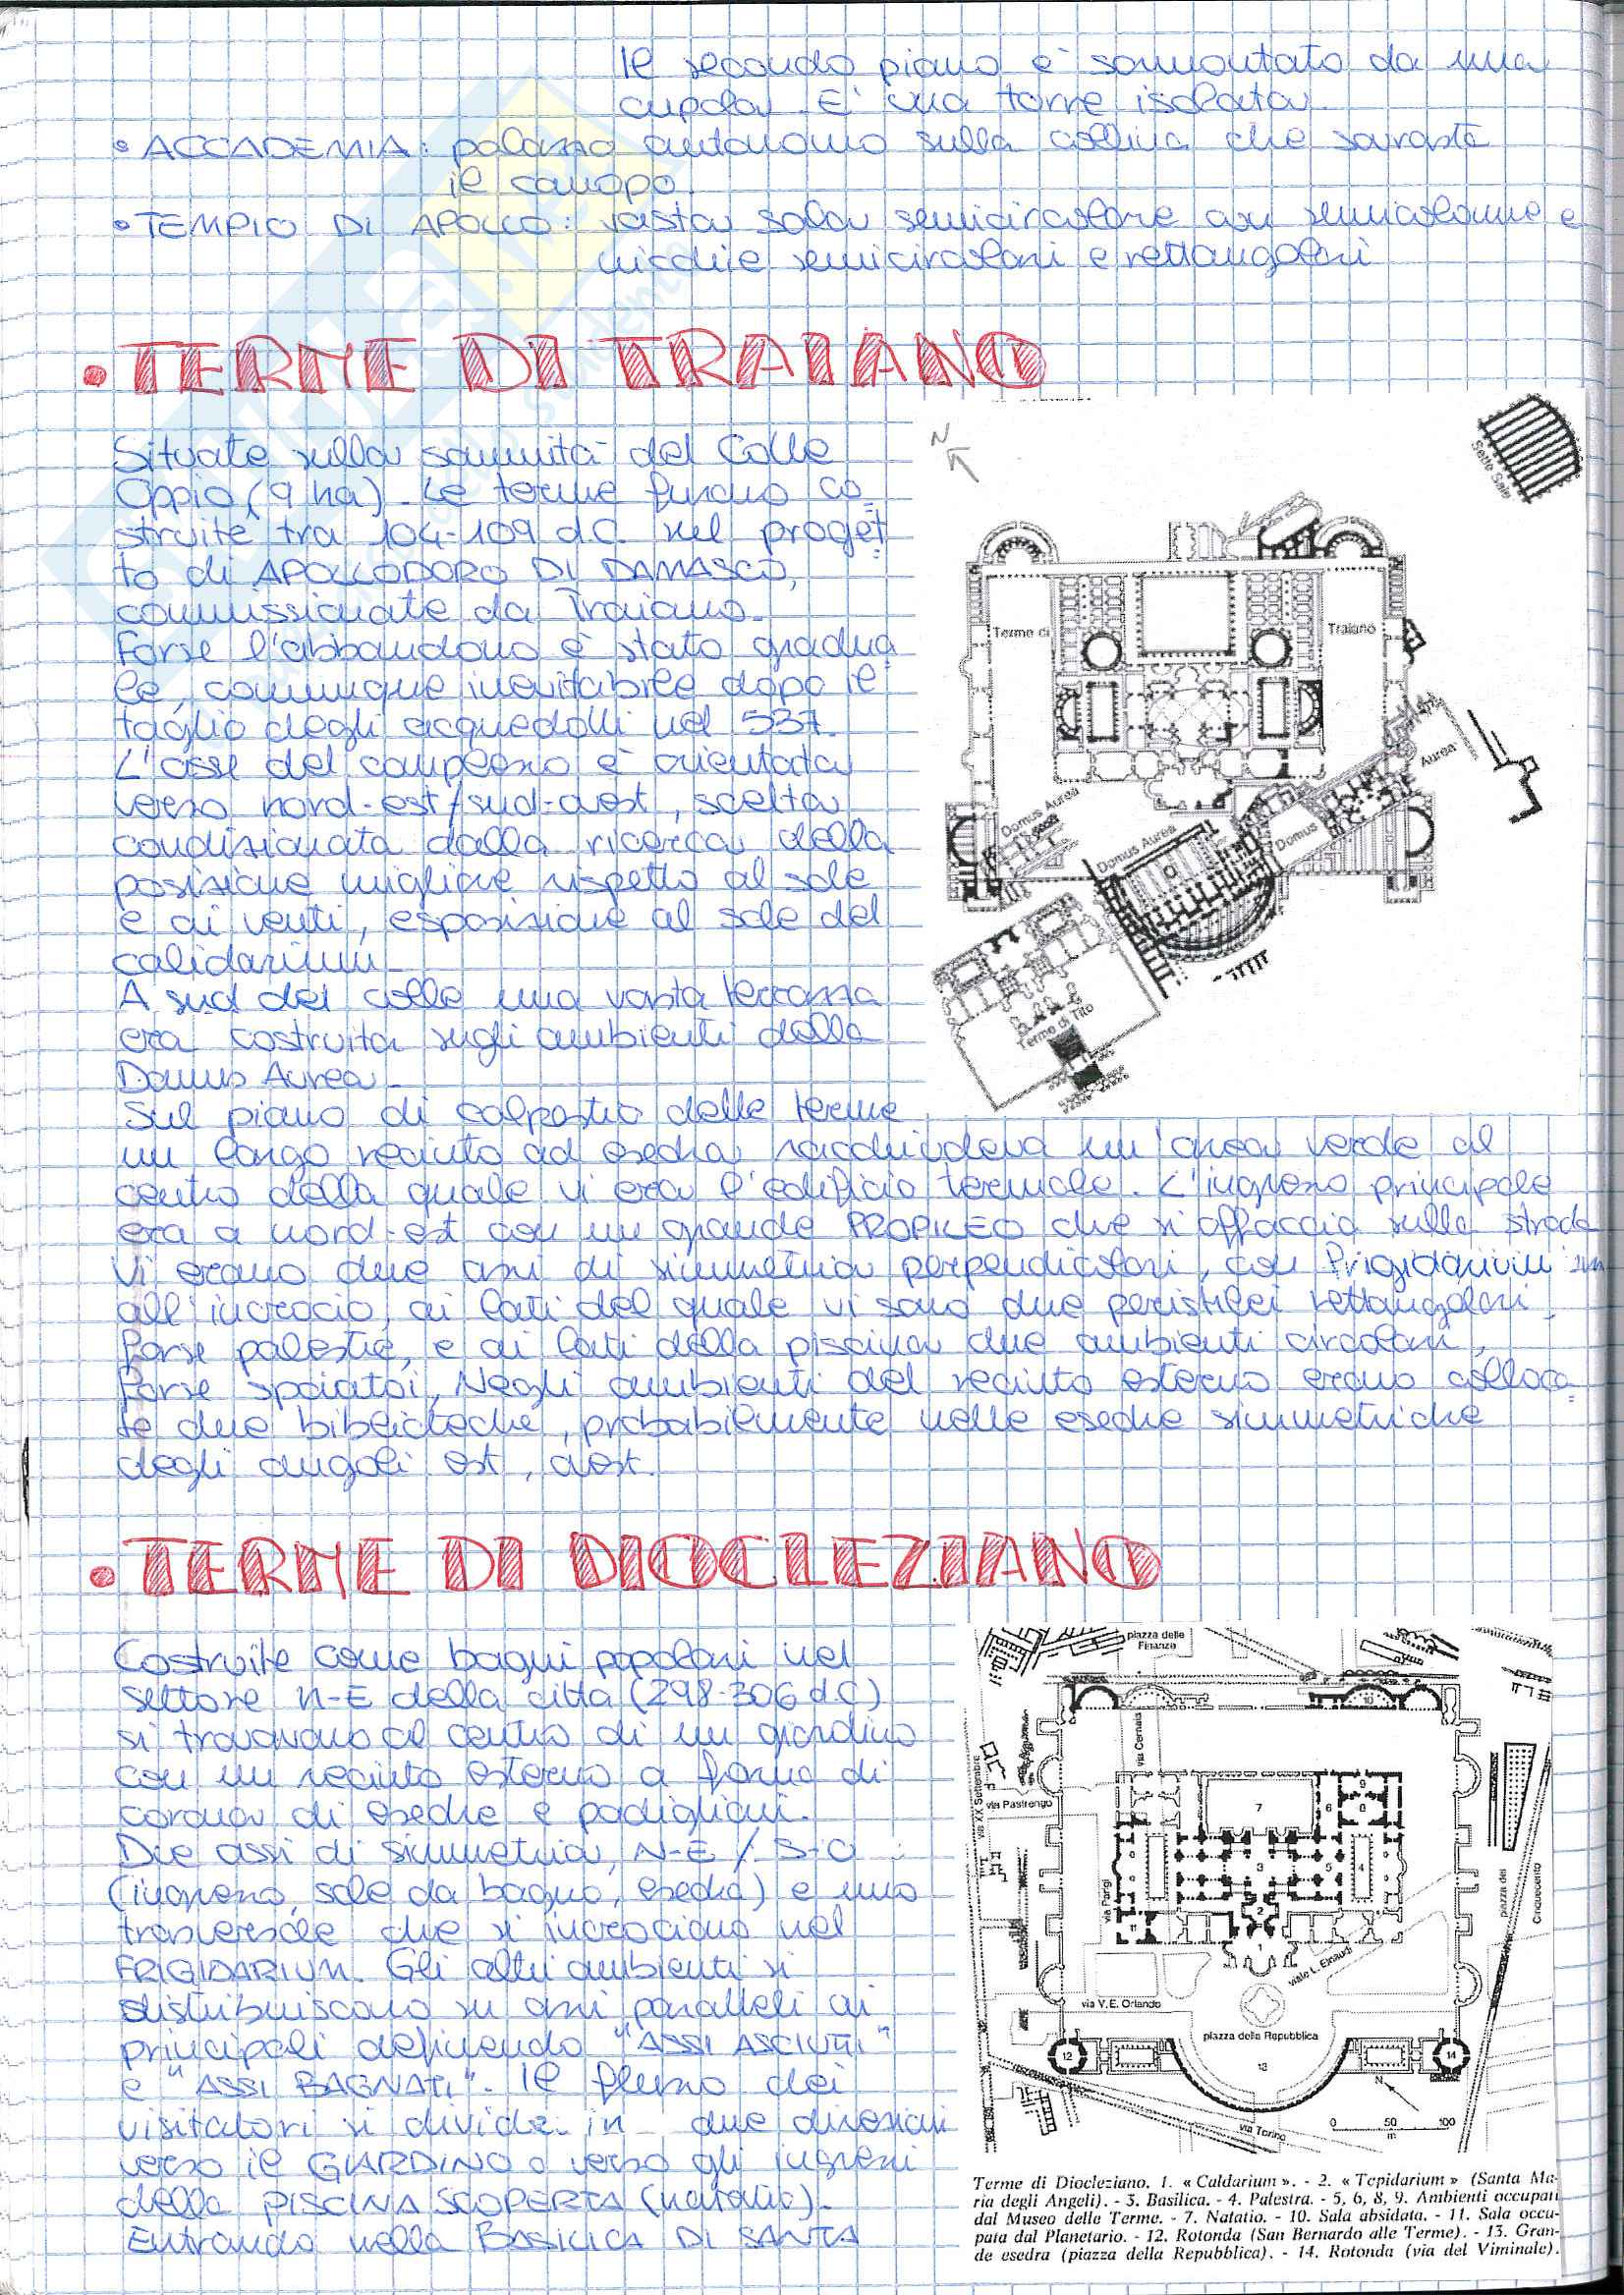 Il secondo piano è sormontato da una
cupola. E' una torre isolata.
• ACCADEMIA: palazzo autonomo sulla collina che sovrasta
il canopo.
• TEMPIO DI APOLLO: vasta sala semicircolare con semicolonne e
nicchie semicircolari e rettangolari
• TERME DI TRAIANO
Situate sulla sommità del Colle
Oppio (9 ha). Le terme furono co
struite tra 104-109 d.C. nel proget
to di APOLLODORO DI DAMASCO,
commissionate da Traiano.
Forse l'abbandono è stato gradua
le, comunque inevitabile dopo il
taglio degli acquedotti nel 537.
L'asse del complesso è orientata
verso nord-est/sud-ovest, scelta
condizionata dalla ricerca della
posizione migliore rispetto al sole
e ai venti, esposizione al sole del
calidarium.
A sud del colle una vasta terrazza
era costruita sugli ambienti della
Domus Aurea.
Sul piano di calpestio delle terme
un largo recinto ad esedra racchiudeva un'area verde al
centro della quale vi era l'edificio termale. L'ingresso principale
era a nord-est con un grande PROPILEO che si affaccia sulla strada
Vi erano due assi di simmetria perpendicolari, con Frigidarium
all'incrocio, ai lati del quale vi sono due peristili rettangolari,
forse palestre, e ai lati della piscina due ambienti circolari,
forse spoiatoi. Negli ambienti del recinto esterno erano colloca
te due biblioteche, probabilmente nelle esedre simmetriche
degli angoli est, ovest.
N
Sette Sale
Terme di
Traiano
Domus Aurea
Domus Aurea
Domus
Aurea
Terme di Tito
• TERME DI DIOCLEZIANO
Costruite come bagni popolari nel
settore N-E della città (298-306 d.C)
si trovavano al centro di un giardino
con un recinto esterno a forma di
corona di esedre e padiglioni.
Due assi di simmetria, N-E / S-O
(ingresso, sale da bagno, esedra) e uno
trasversale che si incrociano nel
FRIGIDARIUM. Gli altri ambienti si
distribuiscono su assi paralleli ai
principali definendo "ASSI ASCIUTTI"
e "ASSI BAGNATI". Il flusso dei
visitatori si divide in due direzioni
verso il GIARDINO o verso gli ingressi
della PISCINA SCOPERTA (natatio).
Entrando nella BASILICA DI SANTA
piazza delle
Finanze
10
via Cernaia
via XX Settembre
via Pastrengo
7
6
9
8
3
5
4
2
via Parigi
11
1
viale L. Einaudi
piazza dei
Cinquecento
via V.E. Orlando
piazza della Repubblica
12
13
14
N
0 50 100
m
via Torino
Terme di Diocleziano. 1. « Caldarium ». - 2. « Tepidarium » (Santa Ma-
ria degli Angeli). - 3. Basilica. - 4. Palestra. - 5, 6, 8, 9. Ambienti occupati
dal Museo delle Terme. - 7. Natatio. - 10. Sala absidata. - 11. Sala occu-
pata dal Planetario. - 12. Rotonda (San Bernardo alle Terme). - 13. Gran-
de esedra (piazza della Repubblica). - 14. Rotonda (via del Viminale).